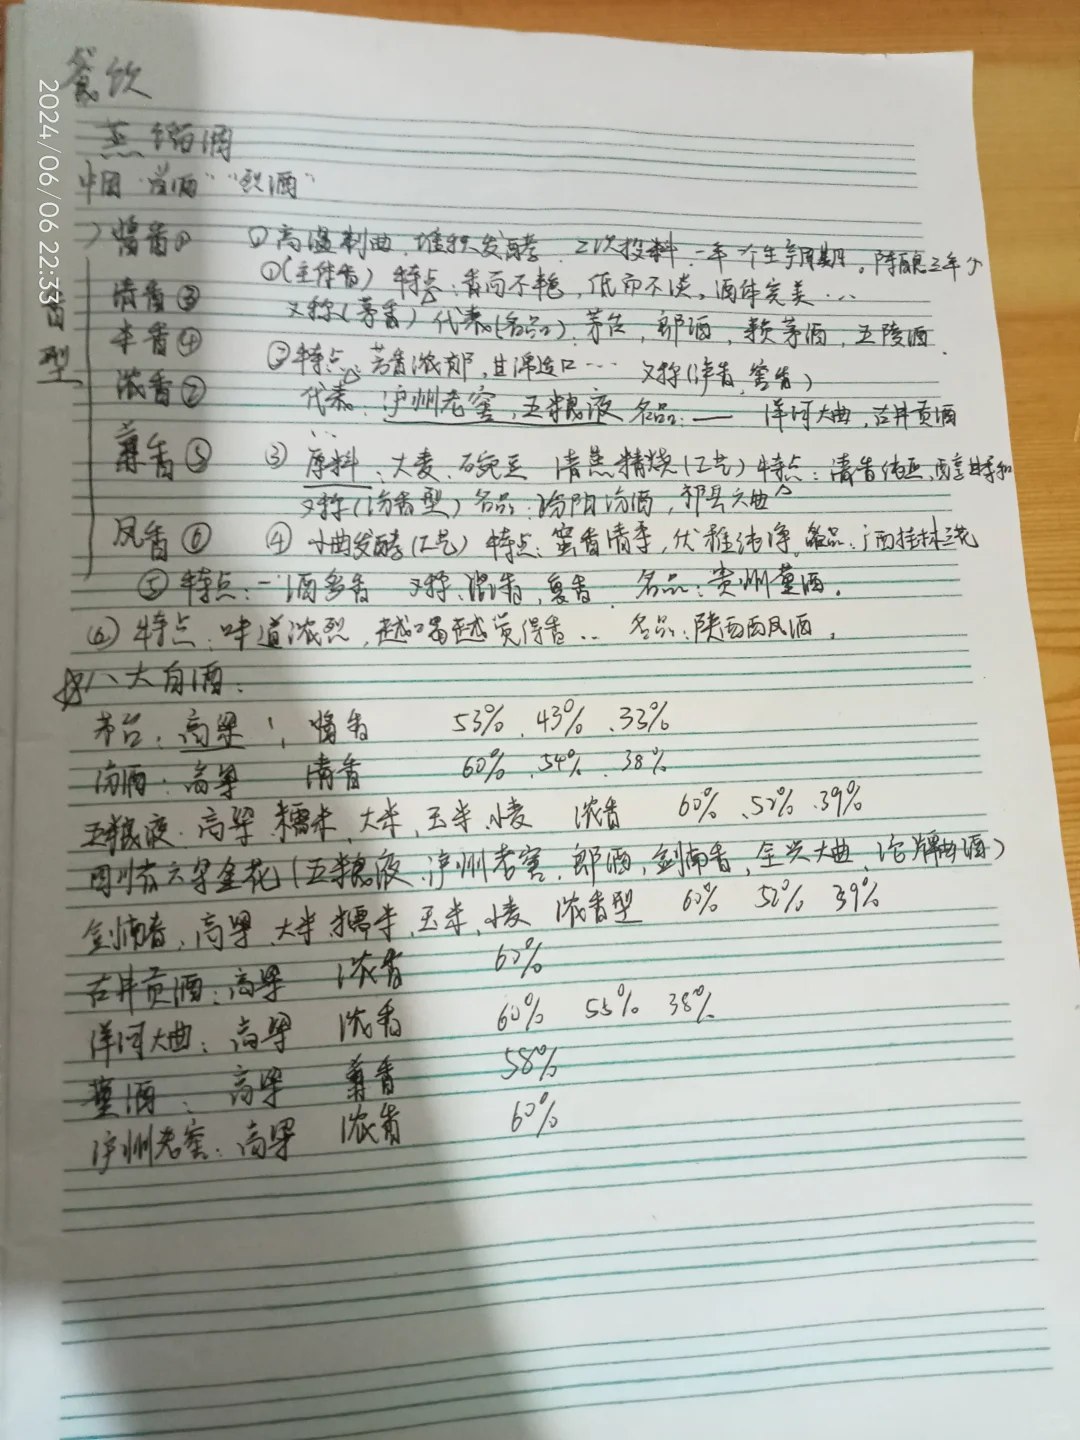 餐饮
2024/06/06 22:33
蒸馏酒
中国 "白酒" "烈酒"
香型
酱香① ①高温制曲、堆积发酵、二次投料、一年一个生产周期。陈酿三年
①(主体香) 特点:香而不艳,低而不淡。酒体完美…
清香③ 又称(茅香) 代表(名品):茅台,郎酒,赖茅酒,五陵酒.
米香④ ②特点:芳香浓郁,甘绵适口… 又称(泸香,窖香)
浓香② 代表:泸州老窖,五粮液 名品:—— 洋河大曲,古井贡酒
兼香⑤ ③ 原料:大麦、豌豆 清蒸精烧(工艺) 特点:清香纯正,醇甘柔和
又称(汾香型) 名品:汾阳汾酒,祁县六曲
凤香⑥ ④ 小曲发酵(工艺) 特点:蜜香清柔,优雅纯净 名品:广西桂林三花
⑤特点:一酒多香 又称:混香,复香 名品:贵州董酒.
⑥特点:味道浓烈,越喝越觉得香… 名品:陕西西凤酒.
☆八大白酒:
茅台:高粱 酱香 53% 、43% 、33%
汾酒:高粱 清香 60% 、54% 、38%
五粮液:高粱 糯米、大米、玉米、小麦 浓香 60% 、52% 、39%
四川有六朵金花(五粮液、泸州老窖、郎酒,剑南春,全兴大曲,沱牌曲酒)
剑南春:高粱、大米、糯米、玉米、小麦 浓香型 60% 52% 39%
古井贡酒:高粱 浓香 60%
洋河大曲:高粱 浓香 60% 55% 38%
董酒:高粱 兼香 58%
泸州老窖:高粱 浓香 60%